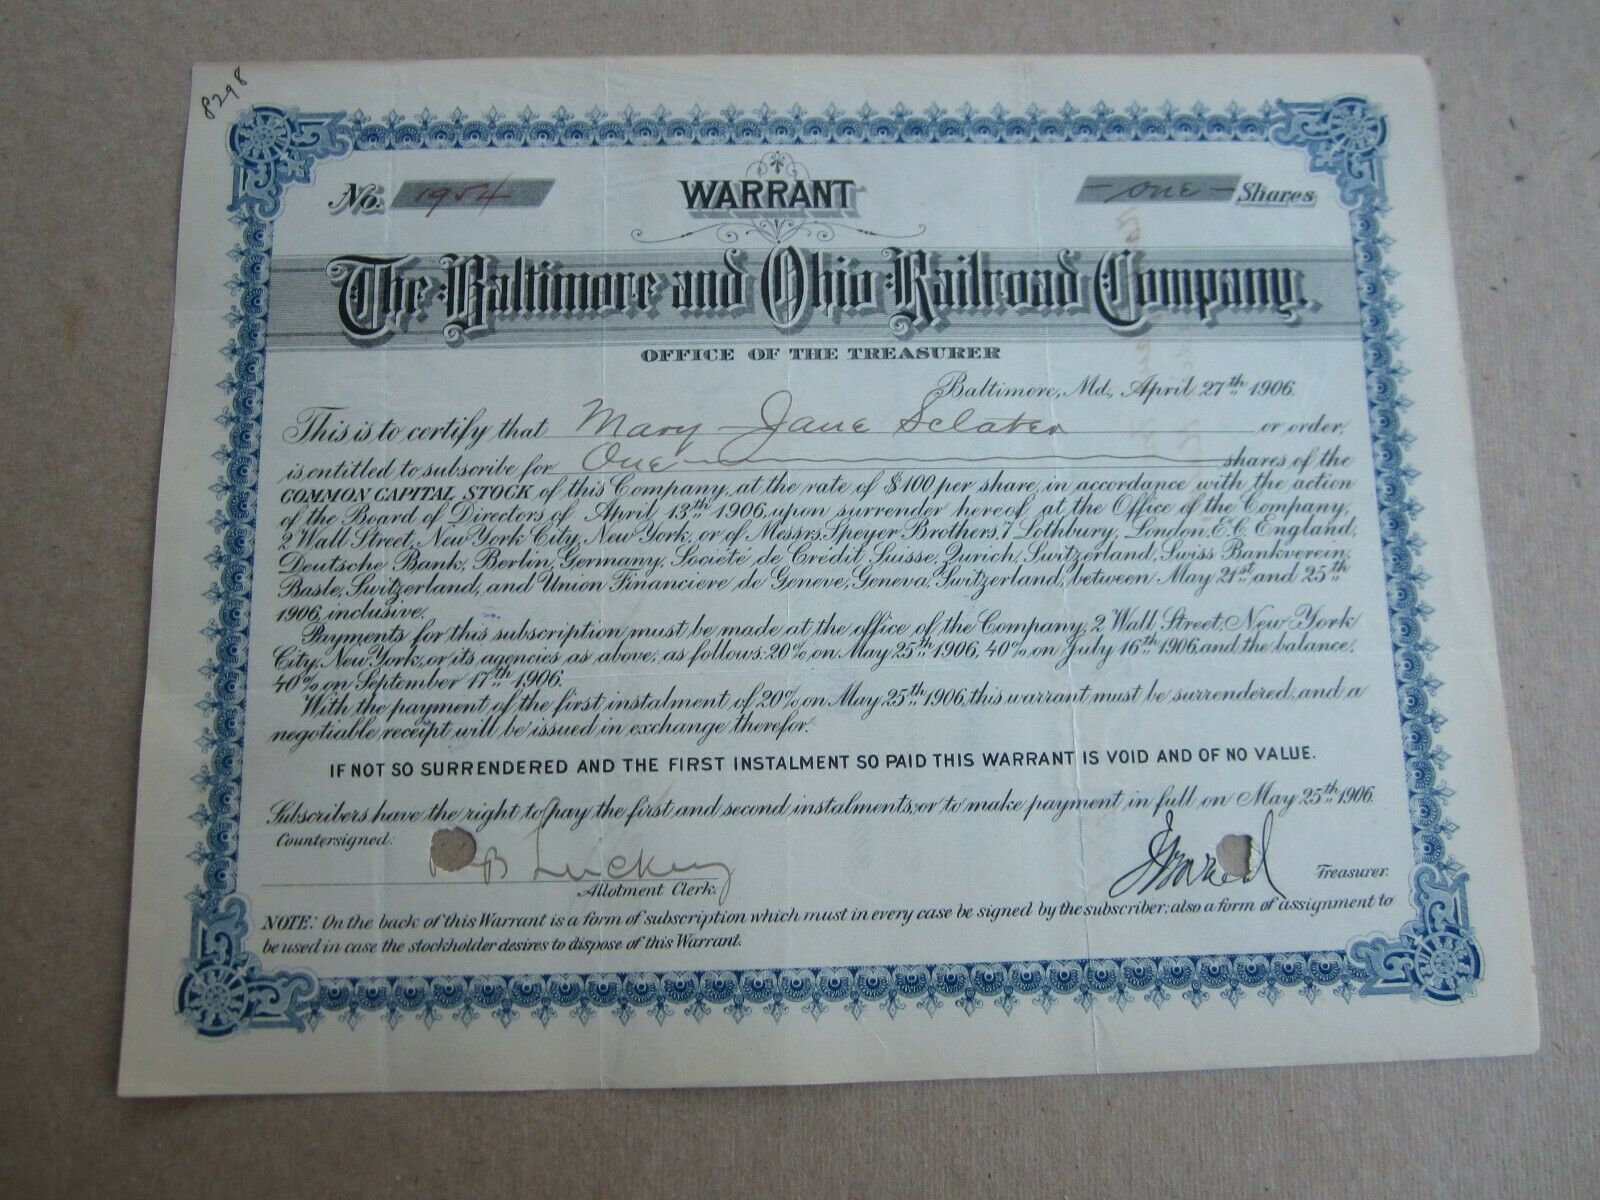 8298
No. 1954 WARRANT - One - Shares
The Baltimore and Ohio Railroad Company.
OFFICE OF THE TREASURER
Baltimore, Md., April 27th 1906.
This is to certify that Mary Jane Sclater or order,
is entitled to subscribe for One shares of the
COMMON CAPITAL STOCK of this Company, at the rate of $100 per share, in accordance with the action
of the Board of Directors of April 13th 1906, upon surrender hereof at the Office of the Company,
2 Wall Street, New York City, New York, or of Messrs. Speyer Brothers, 7 Lothbury, London, E.C. England,
Deutsche Bank, Berlin, Germany, Société de Crédit Suisse, Zurich, Switzerland, Swiss Bankverein,
Basle, Switzerland, and Union Financiere de Geneve, Geneva, Switzerland, between May 21st and 25th
1906, inclusive.
Payments for this subscription must be made at the office of the Company, 2 Wall Street, New York
City, New York, or its agencies as above, as follows: 20% on May 25th 1906, 40% on July 16th 1906, and the balance,
40% on September 17th 1906.
With the payment of the first instalment of 20% on May 25th 1906, this warrant must be surrendered, and a
negotiable receipt will be issued in exchange therefor.
IF NOT SO SURRENDERED AND THE FIRST INSTALMENT SO PAID THIS WARRANT IS VOID AND OF NO VALUE.
Subscribers have the right to pay the first and second instalments, or to make payment in full on May 25th 1906.
Countersigned:
B Luckey
Allotment Clerk. Treasurer.
NOTE: On the back of this Warrant is a form of subscription which must in every case be signed by the subscriber: also a form of assignment to
be used in case the stockholder desires to dispose of this Warrant.